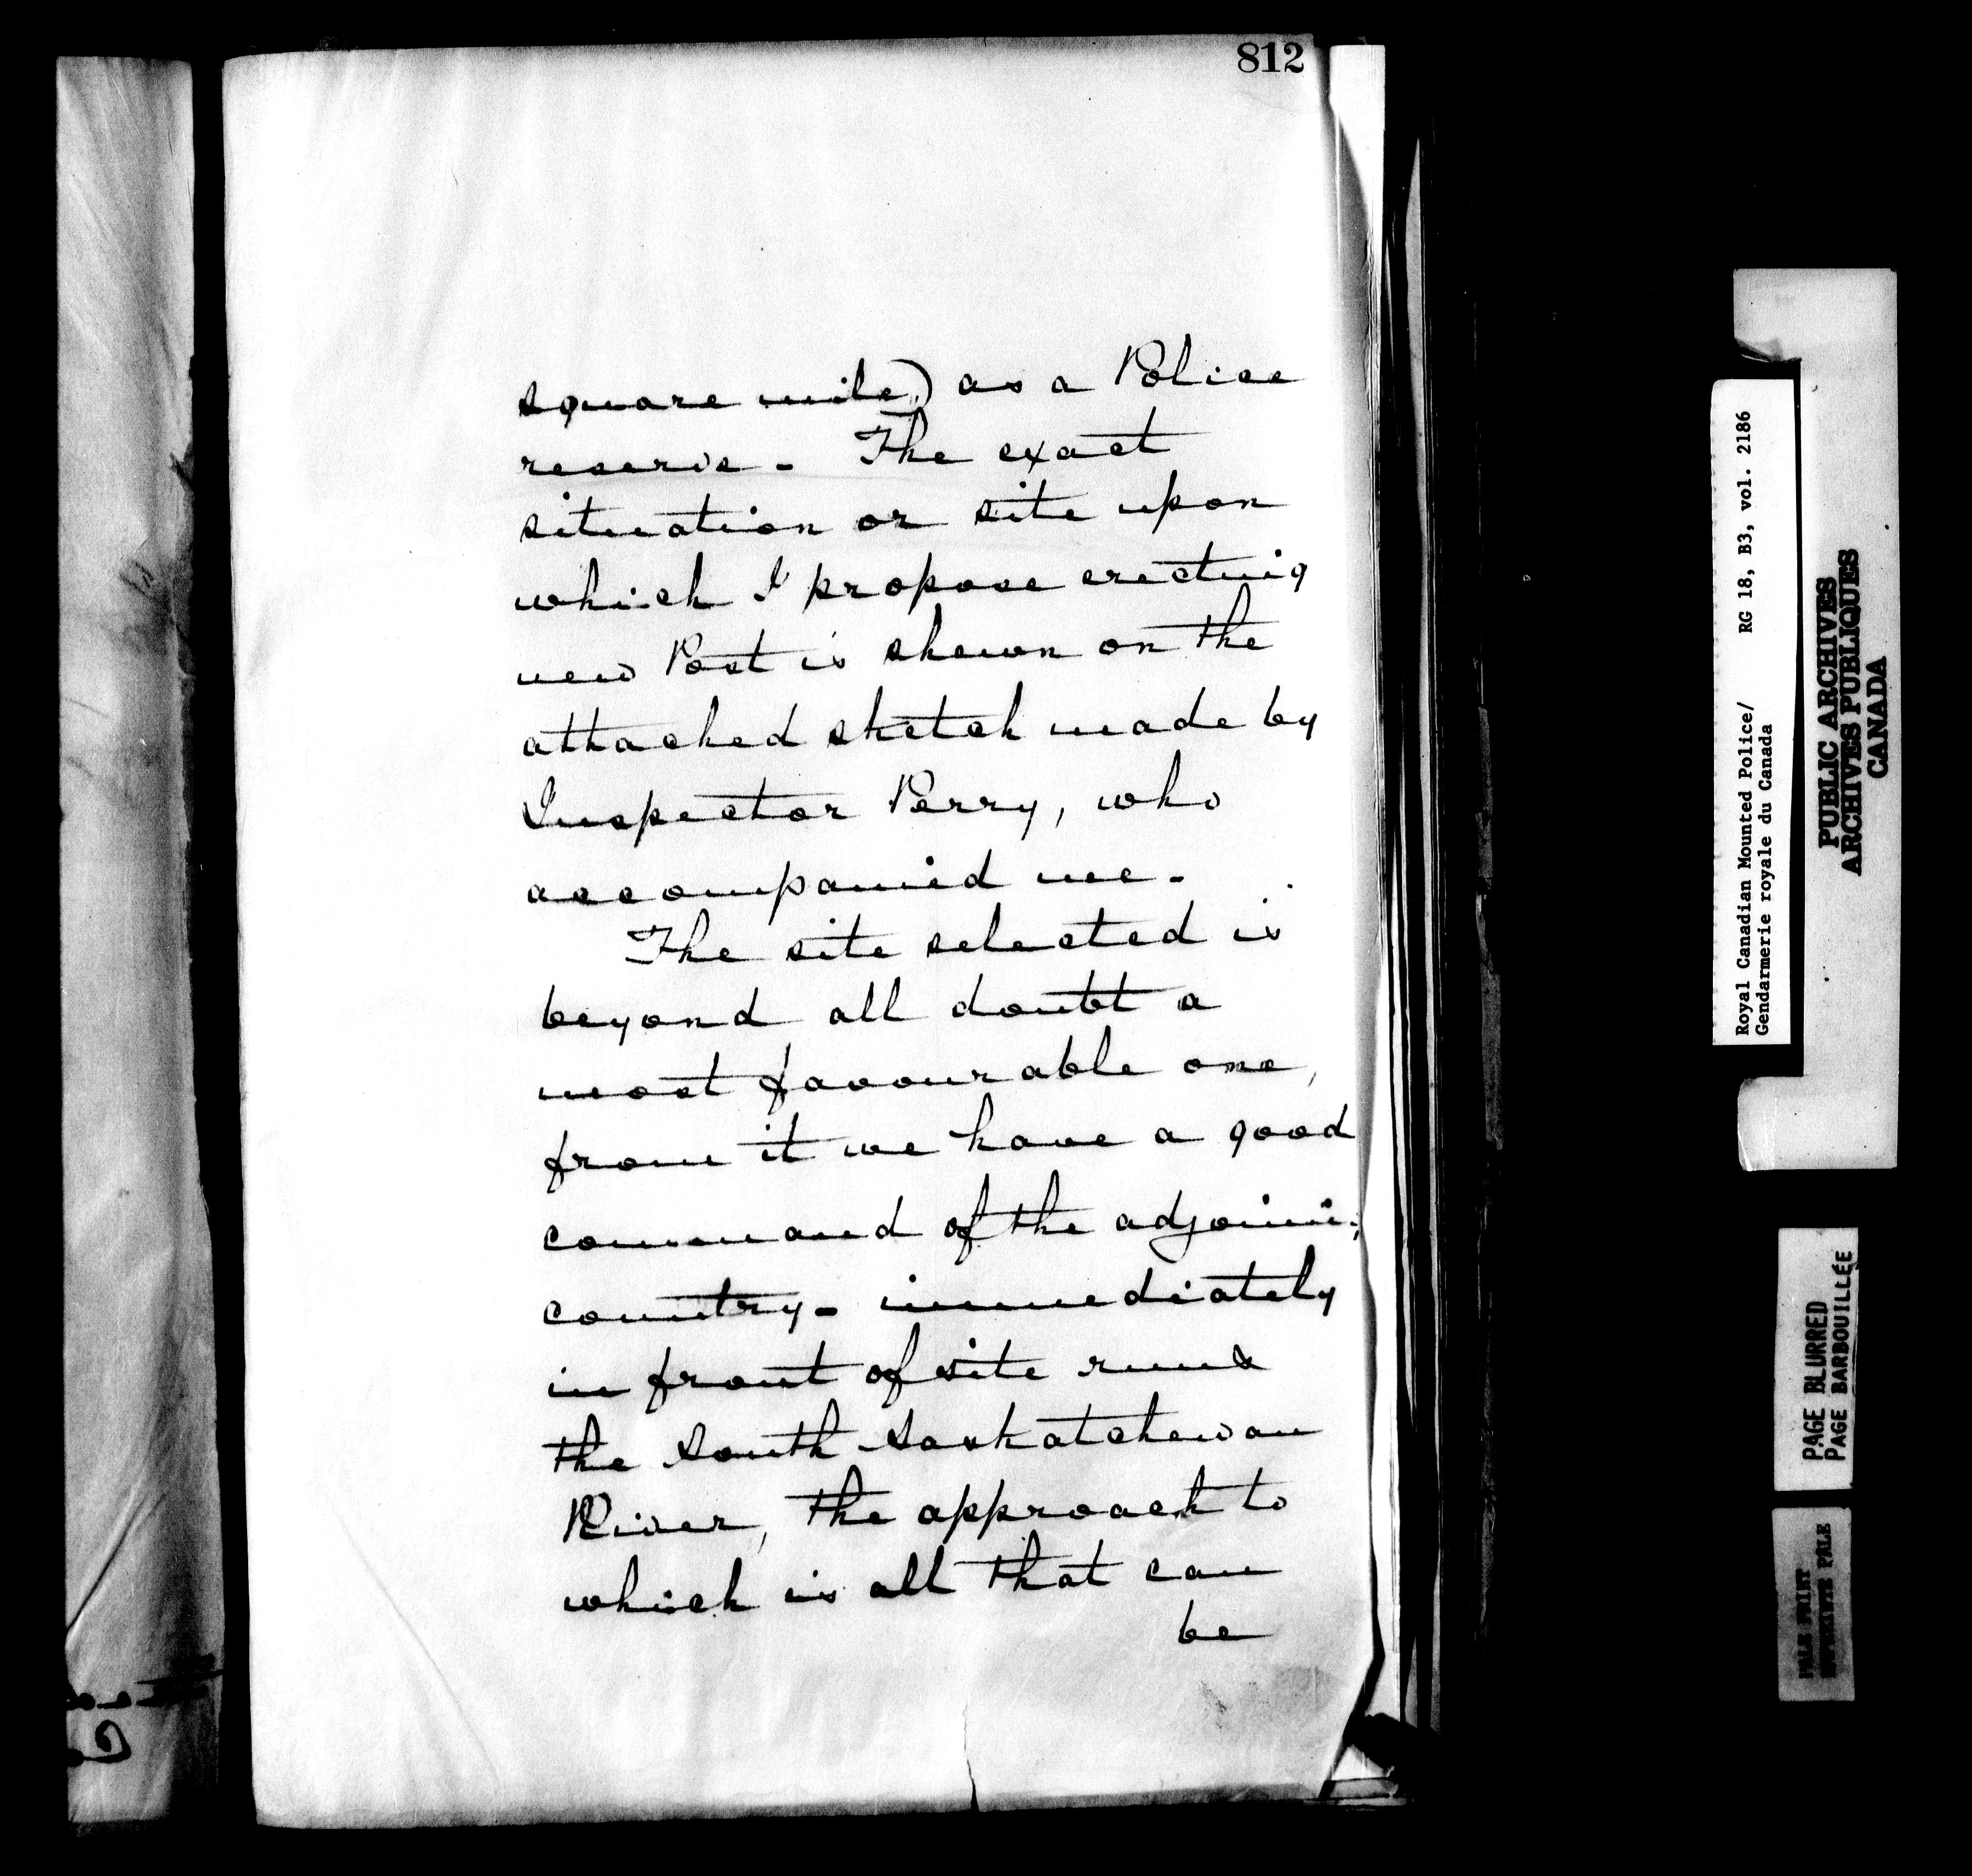 812
square mile) as a Police
reserve - The exact
situation or site upon
which I propose erecting
new Post is shewn on the
attached sketch made by
Inspector Perry, who
accompanied me -
The site selected is
beyond all doubt a
most favourable one,
from it we have a good
command of the adjoining
country - immediately
in front of site runs
the South Saskatchewan
River, the approach to
which is all that can
be
Royal Canadian Mounted Police/ RG 18, B3, vol. 2186
Gendarmerie royale du Canada
PUBLIC ARCHIVES
ARCHIVES PUBLIQUES
CANADA
PAGE BLURRED
PAGE BARBOUILLÉE
PALE PRINT
PALE